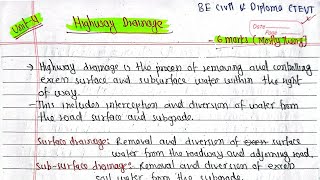 Unit-4
Highway Drainage
BE Civil & Diploma CTEVT
Date
Page
- 6 marks (Mostly Theory)
→ Highway drainage is the process of removing and controlling
excess surface and subsurface water within the right
of way.
- This includes interception and diversion of water from
the road surface and subgrade.
Surface drainage: Removal and diversion of excess surface
water from the roadway and adjoining road.
Sub-surface drainage: Removal and diversion of excess
soil water from the subgrade.